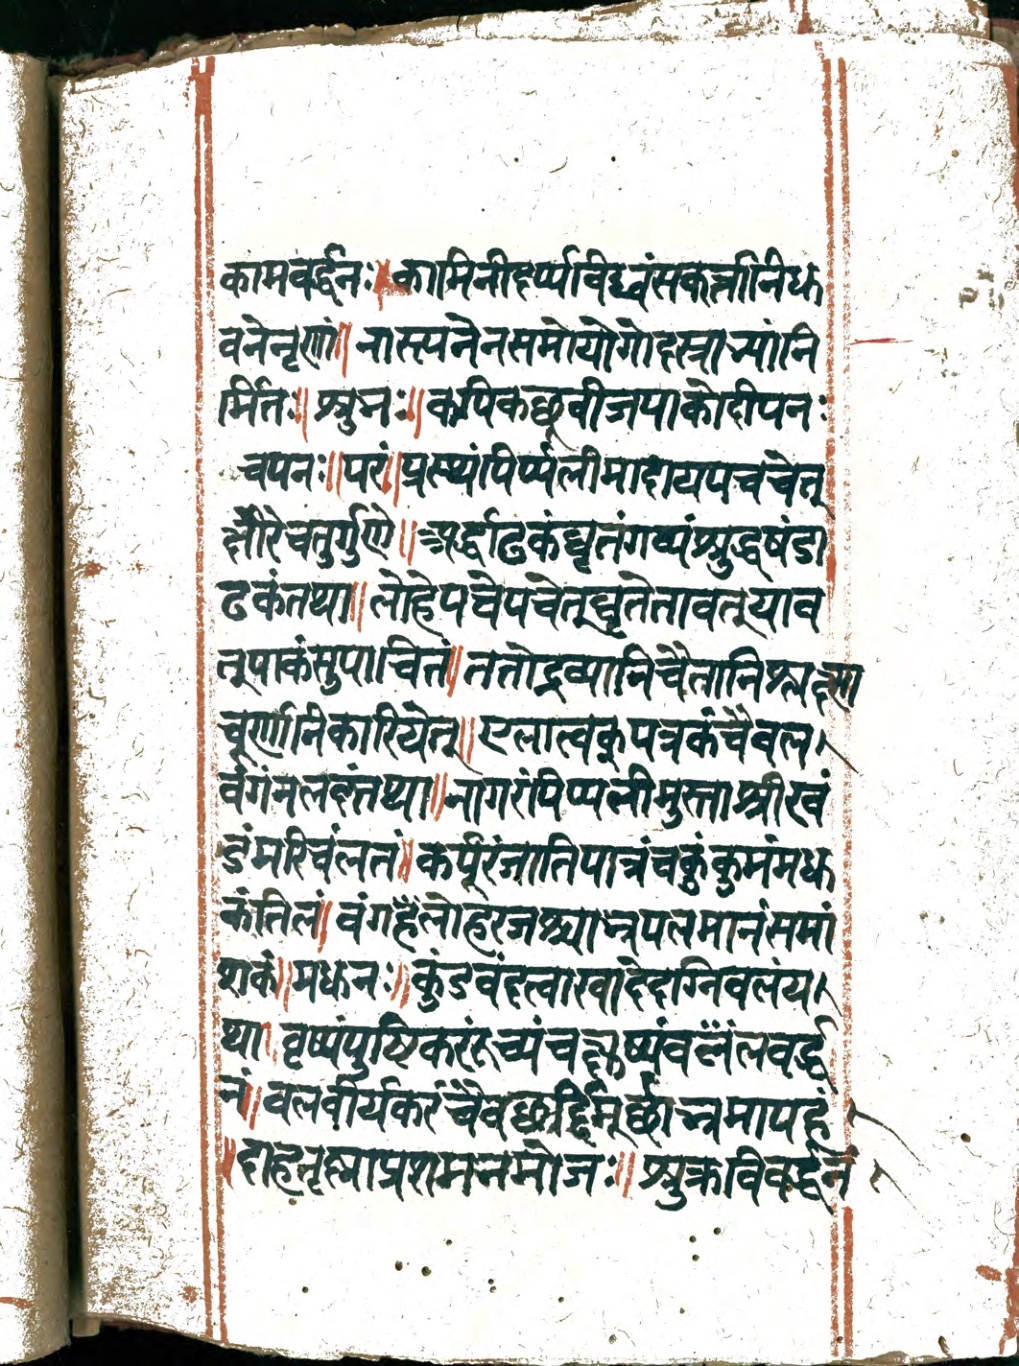 कामवर्द्धनः॥ कामिनीदर्प्पविद्ध्वंसकर्त्तानिधु
वनेनृणां॥ नास्त्यनेनसमोयोगोदस्त्राभ्यांनि
र्मितः॥ श्रुभः॥ कपिकछूवीजपाकोदीपन
चपनः॥ परं॥ प्रस्थंपिर्प्पलीमादायपचचेत्
क्षीरेचतुर्गुणे॥ अर्द्धाढकंघृतंगव्यंश्रुद्धषंडा
ढकंतथा॥ लोहेपचेपचेत्घृतेतावत्याव
त्पाकंसुपाचितं॥ ततोद्रव्यानिचैतानिश्लक्ष्ण
चूर्णानिकारियेत्॥ एलात्वक्पत्रकंचैवल
वंगंनलदंतथा॥ नागरंपिप्पलीमुस्ताश्रीखं
डंमरिचंलतं॥ कर्पूरंजातिपात्रंचकुंकुमंमधु
कंतिलं॥ वंगहैंलोहरजश्चाभ्रपलमानंसमां
शकं॥ मधुनः॥ कुंडवंदत्वाखादेदग्निवलंय
था॥ वृष्यंपुष्टिकरंरूच्यंचक्षुष्यंवलैंलवर्द्ध
नं॥ वलवीर्यकरंचैवछर्द्दिमूर्छाभ्रमापहं
॥ दाहतृष्णाप्रशमनमोजः॥ श्रुक्रविवर्द्धनं